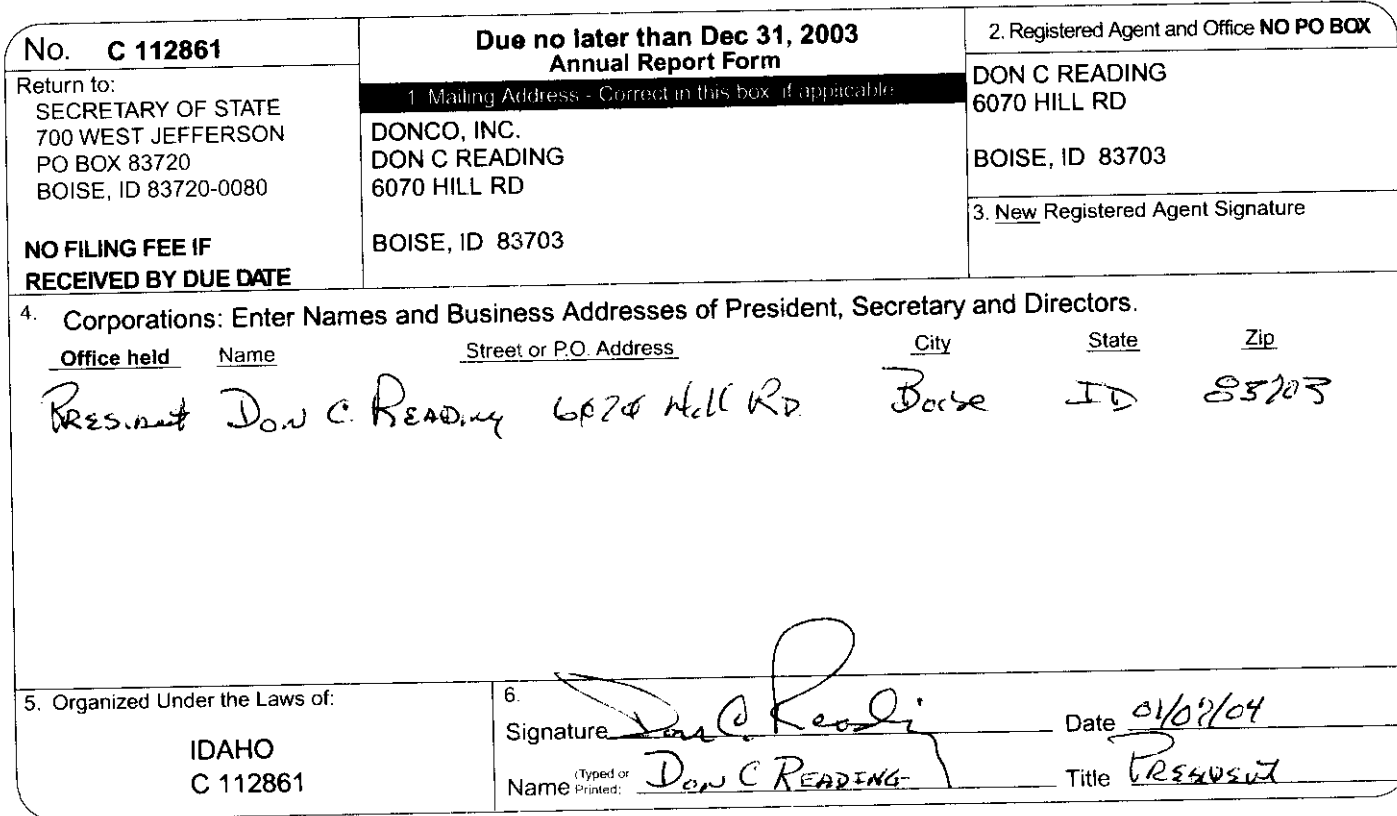 No. C 112861
Return to:
SECRETARY OF STATE
700 WEST JEFFERSON
PO BOX 83720
BOISE, ID 83720-0080
NO FILING FEE IF
RECEIVED BY DUE DATE
Due no later than Dec 31, 2003
Annual Report Form
1 Mailing Address - Correct in this box if applicable
DONCO, INC.
DON C READING
6070 HILL RD
BOISE, ID 83703
2. Registered Agent and Office NO PO BOX
DON C READING
6070 HILL RD
BOISE, ID 83703
3. New Registered Agent Signature
4. Corporations: Enter Names and Business Addresses of President, Secretary and Directors.
Office held Name Street or P.O. Address City State Zip
President Don C. Reading 6070 Hill Rd. Boise ID 83703
5. Organized Under the Laws of:
IDAHO
C 112861
6.
Signature Don C. Reading Date 01/07/04
Name (Typed or Printed: Don C READING Title President